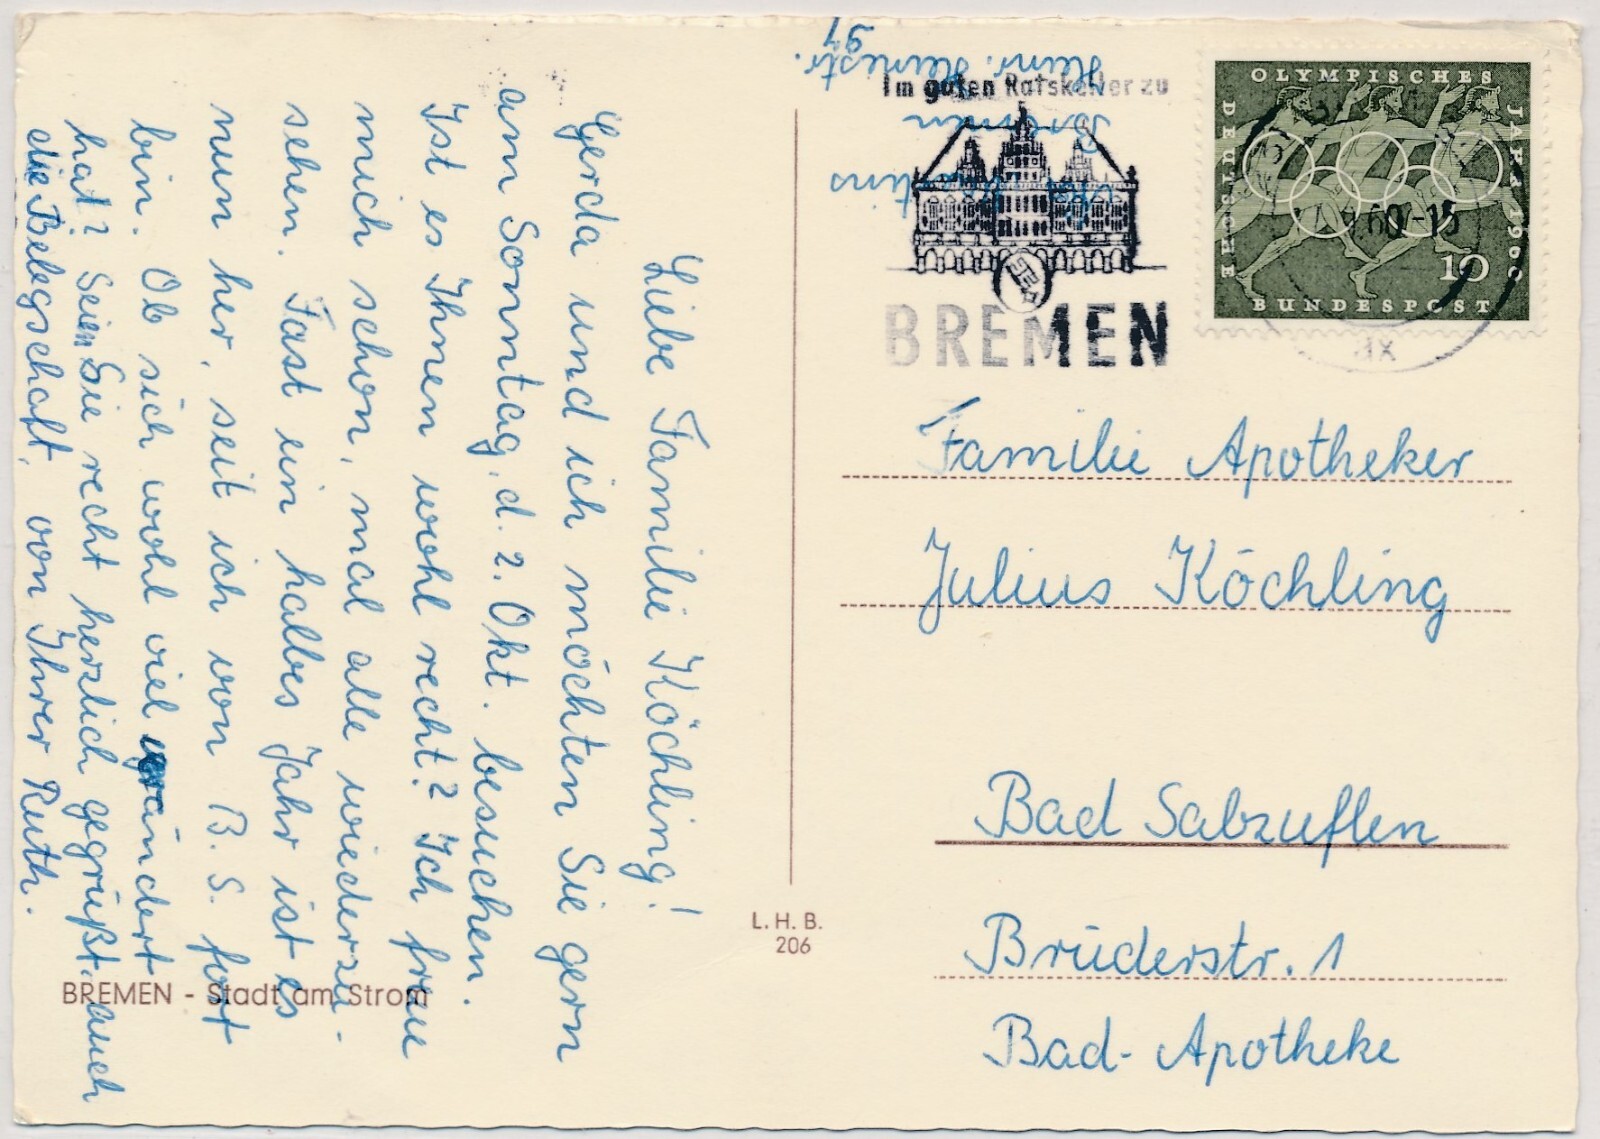 Liebe Familie Köchling!
Gerda und ich möchten Sie gern
am Sonntag, d. 2. Okt. besuchen.
Ist es Ihnen wohl recht? Ich freue
mich schon, mal alle wiederzu-
sehen. Fast ein halbes Jahr ist es
nun her, seit ich von B. S. fort
bin. Ob sich wohl viel verändert
hat? Seien Sie recht herzlich gegrüßt, auch
die Belegschaft, von Ihrer Ruth.
BREMEN - Stadt am Strom
L. H. B.
206
Bremen
Heinr. Heinestr.
91
Im guten Ratskeller zu
BREMEN
OLYMPISCHES
JAHR 1960
DEUTSCHE
BUNDESPOST
10
60-15
Familie Apotheker
Julius Köchling
Bad Salzuflen
Brüderstr. 1
Bad-Apotheke